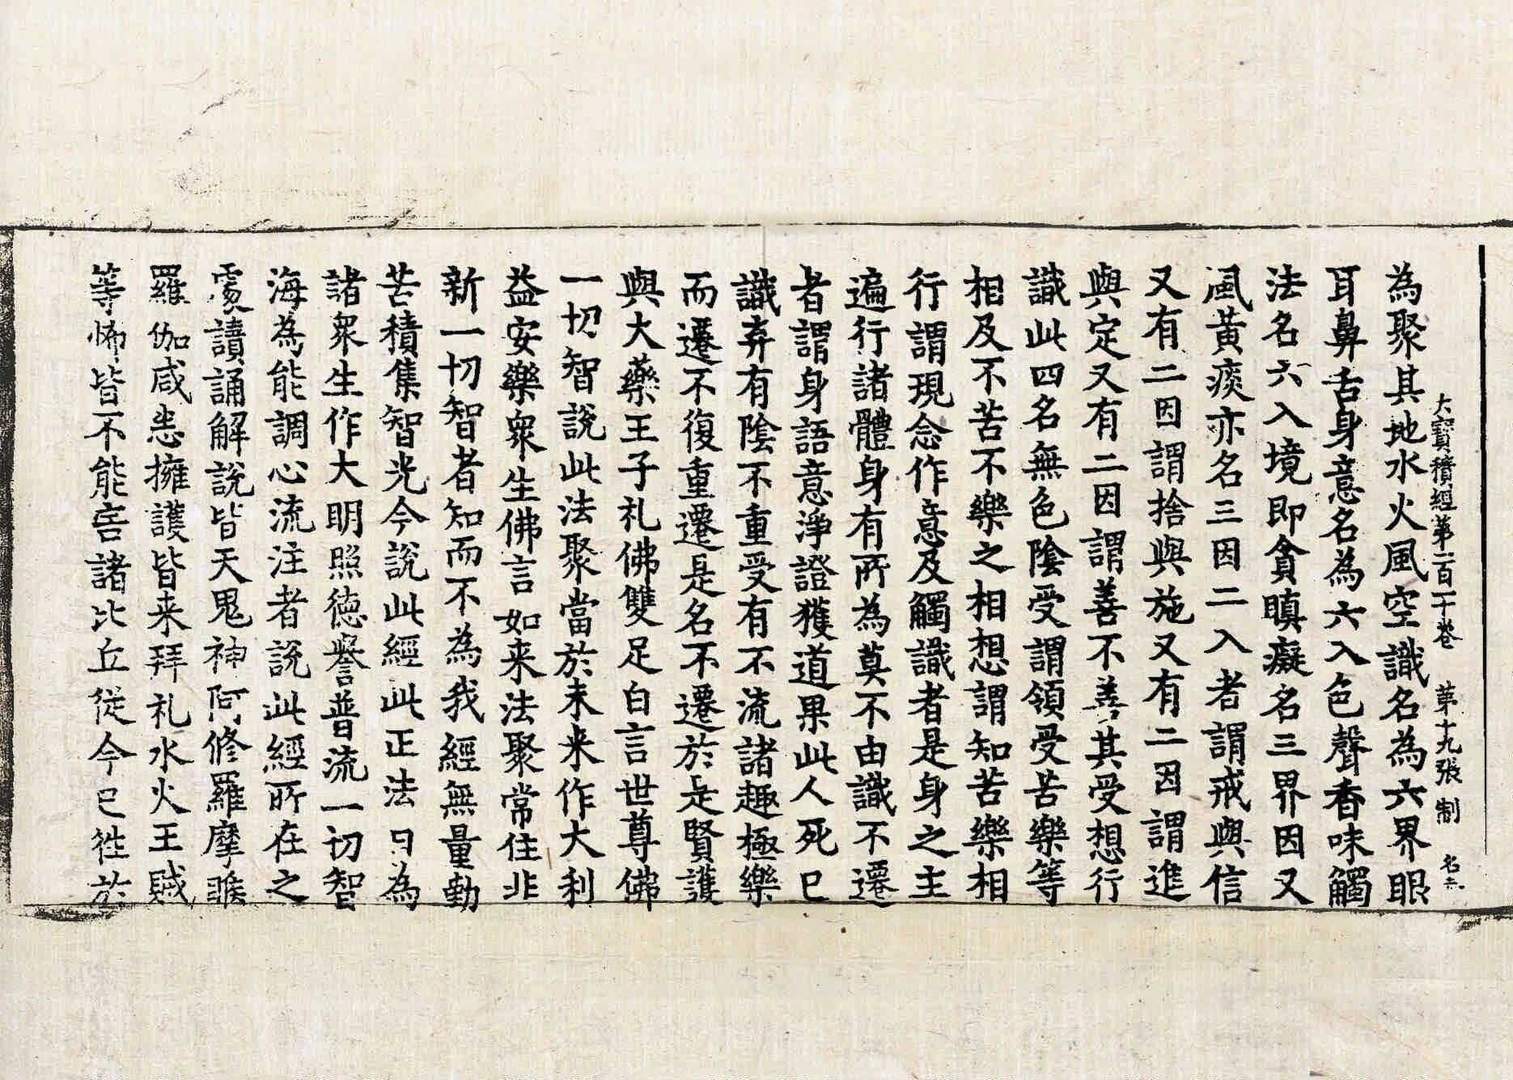 大寶積經第一百一十卷 第十九張 制 名六
為聚其地水火風空識名為六界眼
耳鼻舌身意名為六入色聲香味觸
法名六入境即貪瞋癡名三界因又
風黃痰亦名三因二入者謂戒與信
又有二因謂捨與施又有二因謂進
與定又有二因謂善不善其受想行
識此四名無色陰受謂領受苦樂等
相及不苦不樂之相想謂知苦樂相
行謂現念作意及觸識者是身之主
遍行諸體身有所為莫不由識不遷
者謂身語意淨證獲道果此人死已
識弃有陰不重受有不流諸趣極樂
而遷不復重遷是名不遷於是賢護
與大藥王子礼佛雙足白言世尊佛
一切智說此法聚當於未来作大利
益安樂眾生佛言如来法聚常住非
新一切智者知而不為我經無量勤
苦積集智光今說此經此正法日為
諸眾生作大明照德譽普流一切智
海為能調心流注者說此經所在之
處讀誦解說皆天鬼神阿修羅摩睺
羅伽咸悉擁護皆来拜礼水火王賊
等怖皆不能害諸比丘從今已往於